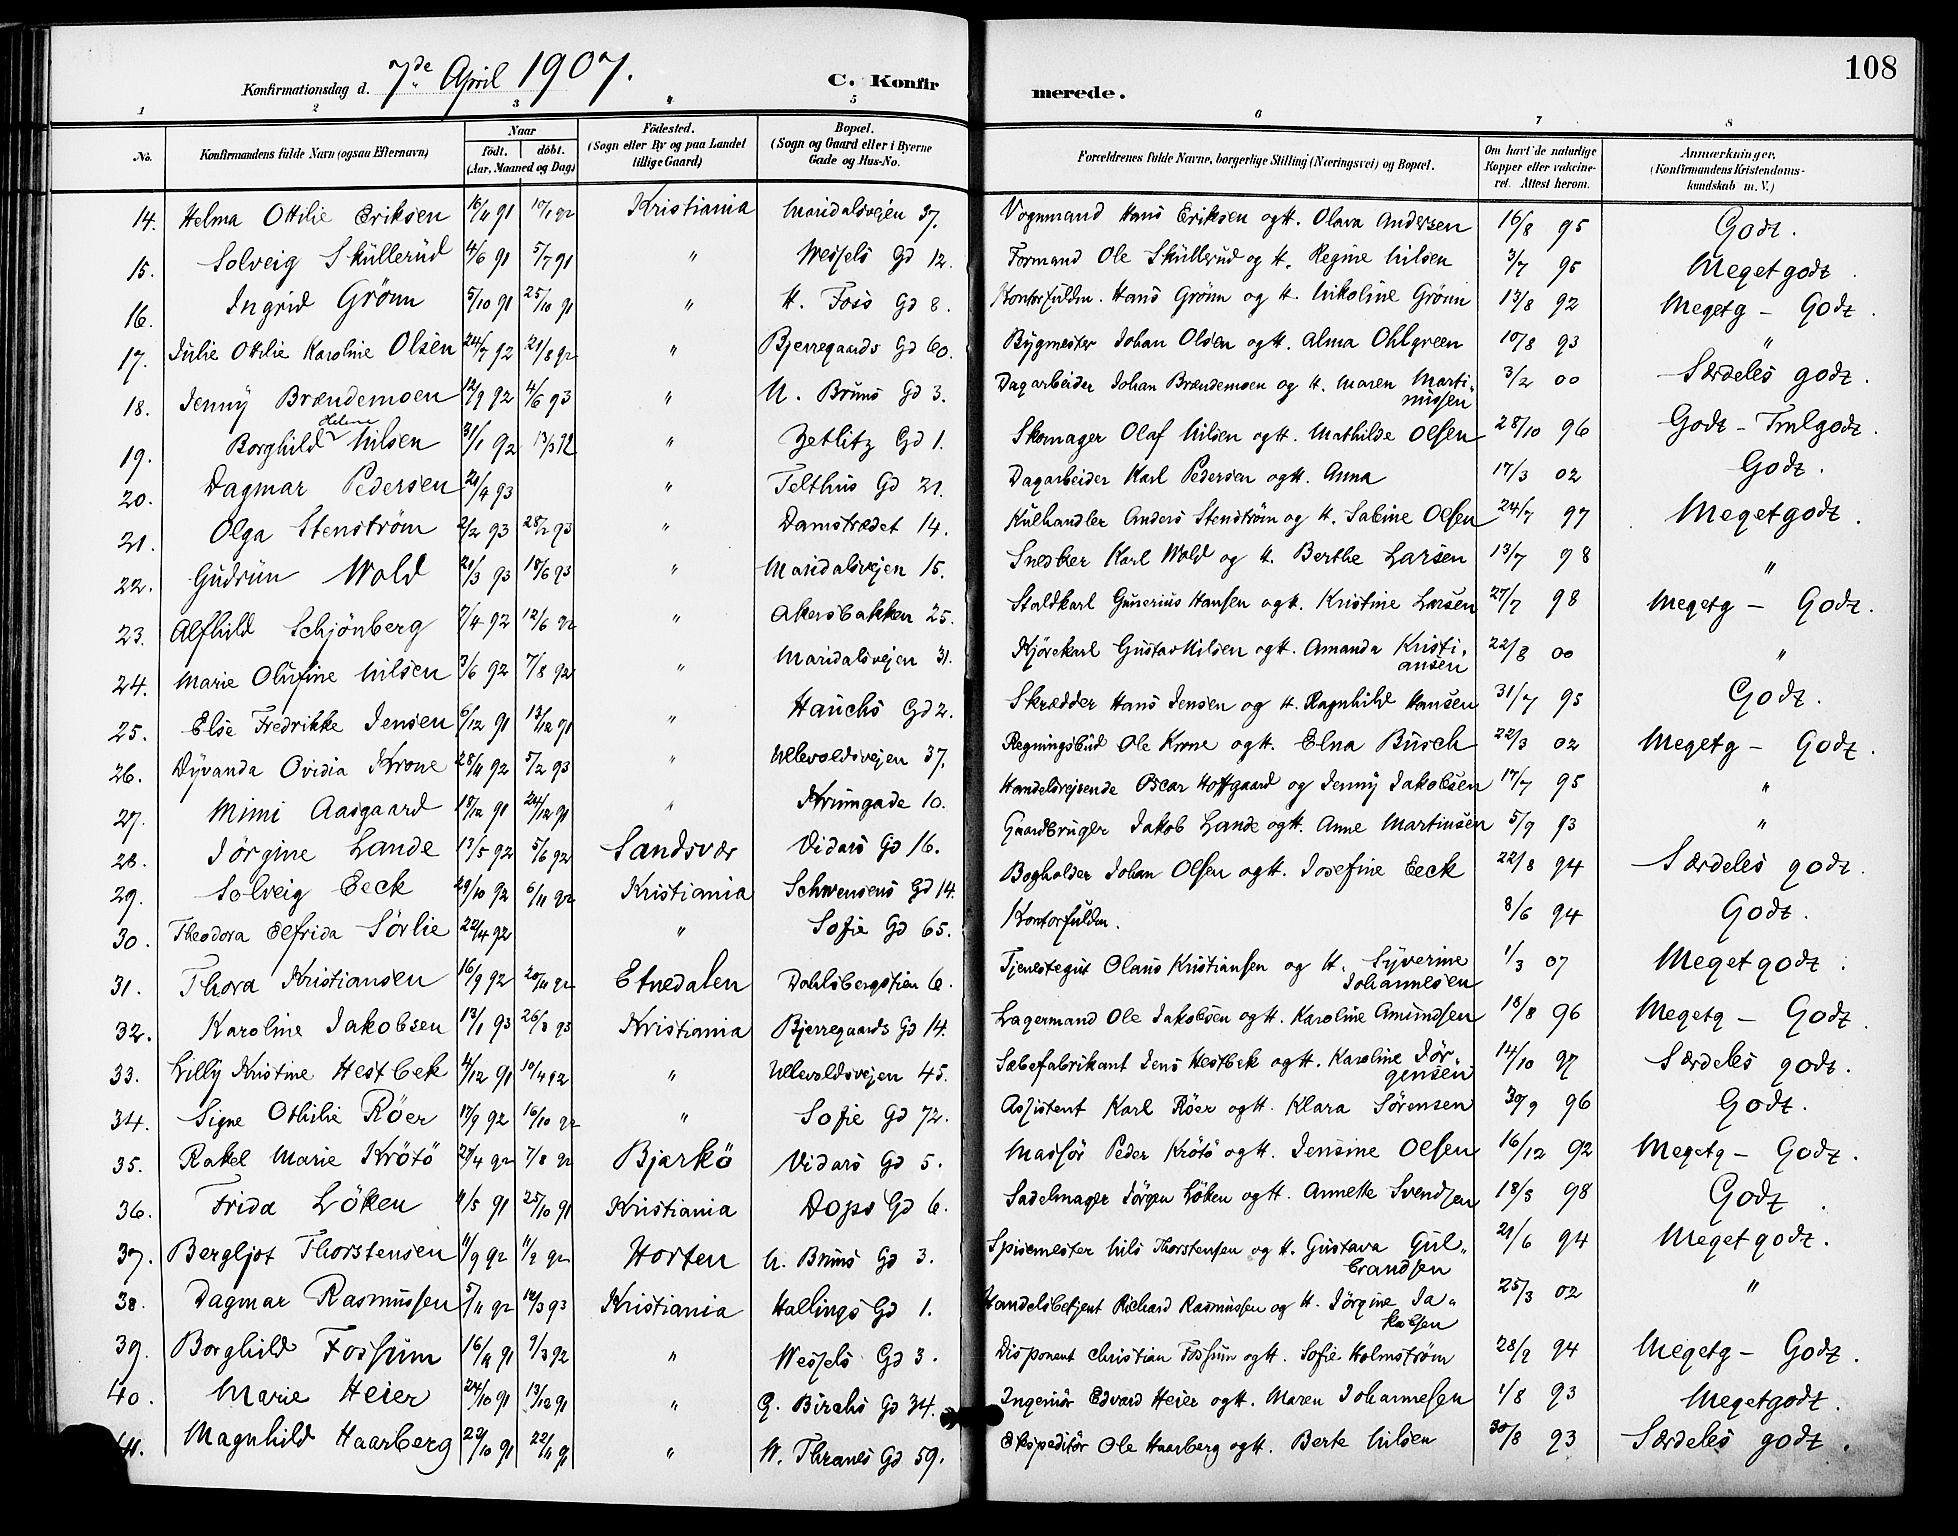 108
Konfirmationsdag d. 7de April 1907. C. Konfirmerede.
1 2 3 4 5 6 7 8
No. Konfirmandens fulde Navn (ogsaa Efternavn) Naar født. døbt. (Aar, Maaned og Dag) Födested. (Sogn eller By og paa Landet tillige Gaard) Bopæl. (Sogn og Gaard eller i Byerne Gade og Hus-No. Forældrenes fulde Navne, borgerlige Stilling (Næringsvei) og Bopæl. Om havt de naturlige Kopper eller vakcineret. Attest herom. Anmærkninger. (Konfirmandens Kristendomskundskab m. V.)
14. Helma Ottilie Eriksen 16/11 91 10/1 92 Kristiania Maridalsvejen 37. Vognmand Hans Eriksen og H. Olava Andersen 16/8 95 Godt.
15. Solveig Skullerud 4/6 91 5/7 91 " Wessels Gd 12. Formand Ole Skullerud og H. Regine Nilsen 3/7 95 Megetgodt.
16. Ingrid Grönn 5/10 91 25/10 91 " H. Foss Gd 8. Kontorfuldm. Hans Grönn og H. Nikoline Grönn 13/8 92 Megetg - Godt.
17. Julie Otilie Karoline Olsen 24/7 92 21/8 92 " Bjerregaards Gd 60. Bygmester Johan Olsen og H. Alma Ohlgreen 10/8 93 "
18. Jenny Brændemoen 12/9 92 4/6 93 " N. Bruns Gd 3. Dagarbeider Johan Brændemoen og H. Maren Martinussen 3/2 00 Særdeles godt.
19. Borghild Helene Nilsen 31/1 92 13/3 92 " Zetlitz Gd 1. Skomager Olaf Nilsen og H. Mathilde Olsen 28/10 96 Godt - Tmlgodt.
20. Dagmar Pedersen 20/4 93 " Telthus Gd 21. Dagarbeider Karl Pedersen og H. Anna 17/3 02 Godt.
21. Olga Stenström 2/2 93 28/2 93 " Damstrædet 14. Kulhandler Anders Stenström og H. Sabine Olsen 24/7 97 Megetgodt.
22. Gudrun Wold 21/3 93 18/6 93 " Maridalsvejen 15. Snedker Karl Wold og H. Berthe Larsen 13/7 98 "
23. Alfhild Schjönberg 7/4 92 12/6 92 " Akersbakken 25. Staldkarl Gunerius Hansen og H. Kristine Larsen 27/7 98 Megetg - Godt.
24. Marie Olufine Nilsen 3/6 92 7/8 92 " Maridalsvejen 31. Kjörekarl Gustav Nilsen og H. Amanda Kristiansen 22/8 00 "
25. Else Fredrikke Jensen 6/12 91 13/12 91 " Hauchs Gd 2. Skrædder Hans Jensen og H. Ragnhild Hansen 31/7 95 Godt.
26. Dyvanda Ovidia Krone 28/11 92 5/2 93 " Ullevoldsvejen 37. Regningsbud Ole Krone og H. Elna Busch 22/3 02 Megetg - Godt.
27. Mimi Aasgaard 18/12 91 24/12 91 " Krumgade 10. Handelsrejsende Oscar Hoffgaard og Jenny Jakobsen 17/7 95 "
28. Jörgine Lande 13/5 92 5/6 92 Sandsvær Vidars Gd 16. Gaardbruger Jakob Lande og H. Anne Martinsen 5/9 93 "
29. Solveig Eeck 29/10 92 6/11 92 Kristiania Schwensens Gd 14. Bogholder Johan Olsen og H. Josefine Eeck 22/8 94 Særdeles godt.
30. Theodora Elfrida Sörlie 22/4 92 " Sofie Gd 65. Kontorfuldm. 8/6 94 Godt.
31. Thora Kristiansen 16/9 92 20/11 92 Etnedalen Dahlsbergstien 6. Tjenestegut Olaus Kristiansen og H. Syverine Johannesen 1/3 07 Megetgodt.
32. Karoline Jakobsen 13/1 93 26/3 93 Kristiania Bjerregaards Gd 14. Lagermand Ole Jakobsen og H. Karoline Amundsen 18/8 96 Megetg - Godt.
33. Lilly Kristine Hestbek 4/12 91 10/4 92 " Ullevoldsvejen 45. Sæbefabrikant Jens Hestbek og H. Karoline Jörgensen 14/10 97 Særdeles godt.
34. Signe Othilie Röer 17/9 92 16/10 92 " Sofie Gd 72. Assistent Karl Röer og H. Klara Sörensen 30/9 96 Godt.
35. Rakel Marie Krötö 27/4 92 7/8 92 Bjarkö Vidars Gd 5. Massör Peder Krötö og H. Jensine Olsen 16/12 92 Megetg - Godt.
36. Frida Löken 4/5 91 25/10 91 Kristiania Dops Gd 6. Sadelmager Jörgen Löken og H. Annette Svendsen 18/5 98 Godt.
37. Bergljot Thorstensen 11/9 92 11/9 92 Horten N. Bruns Gd 3. Spisemester Nils Thorstensen og H. Gustava Gulbrandsen 21/6 94 Megetgodt.
38. Dagmar Rasmussen 5/11 92 12/3 93 Kristiania Hallings Gd 1. Handelsbetjent Richard Rasmussen og H. Jörgine Jakobsen 25/3 02 "
39. Borghild Fossum 16/9 91 9/3 92 " Wessels Gd 3. Disponent Christian Fossum og H. Sofie Holmström 28/9 94 Megetg - Godt.
40. Marie Heier 24/10 91 13/12 91 " G. Birchs Gd 34. Ingeniör Edvard Heier og H. Maren Johannesen 1/8 93 Megetgodt.
41. Magnhild Haarberg 22/10 91 22/11 91 " W. Thranes Gd 59. Ekspeditör Ole Haarberg og H. Berte Nilsen 30/8 93 Særdeles godt.